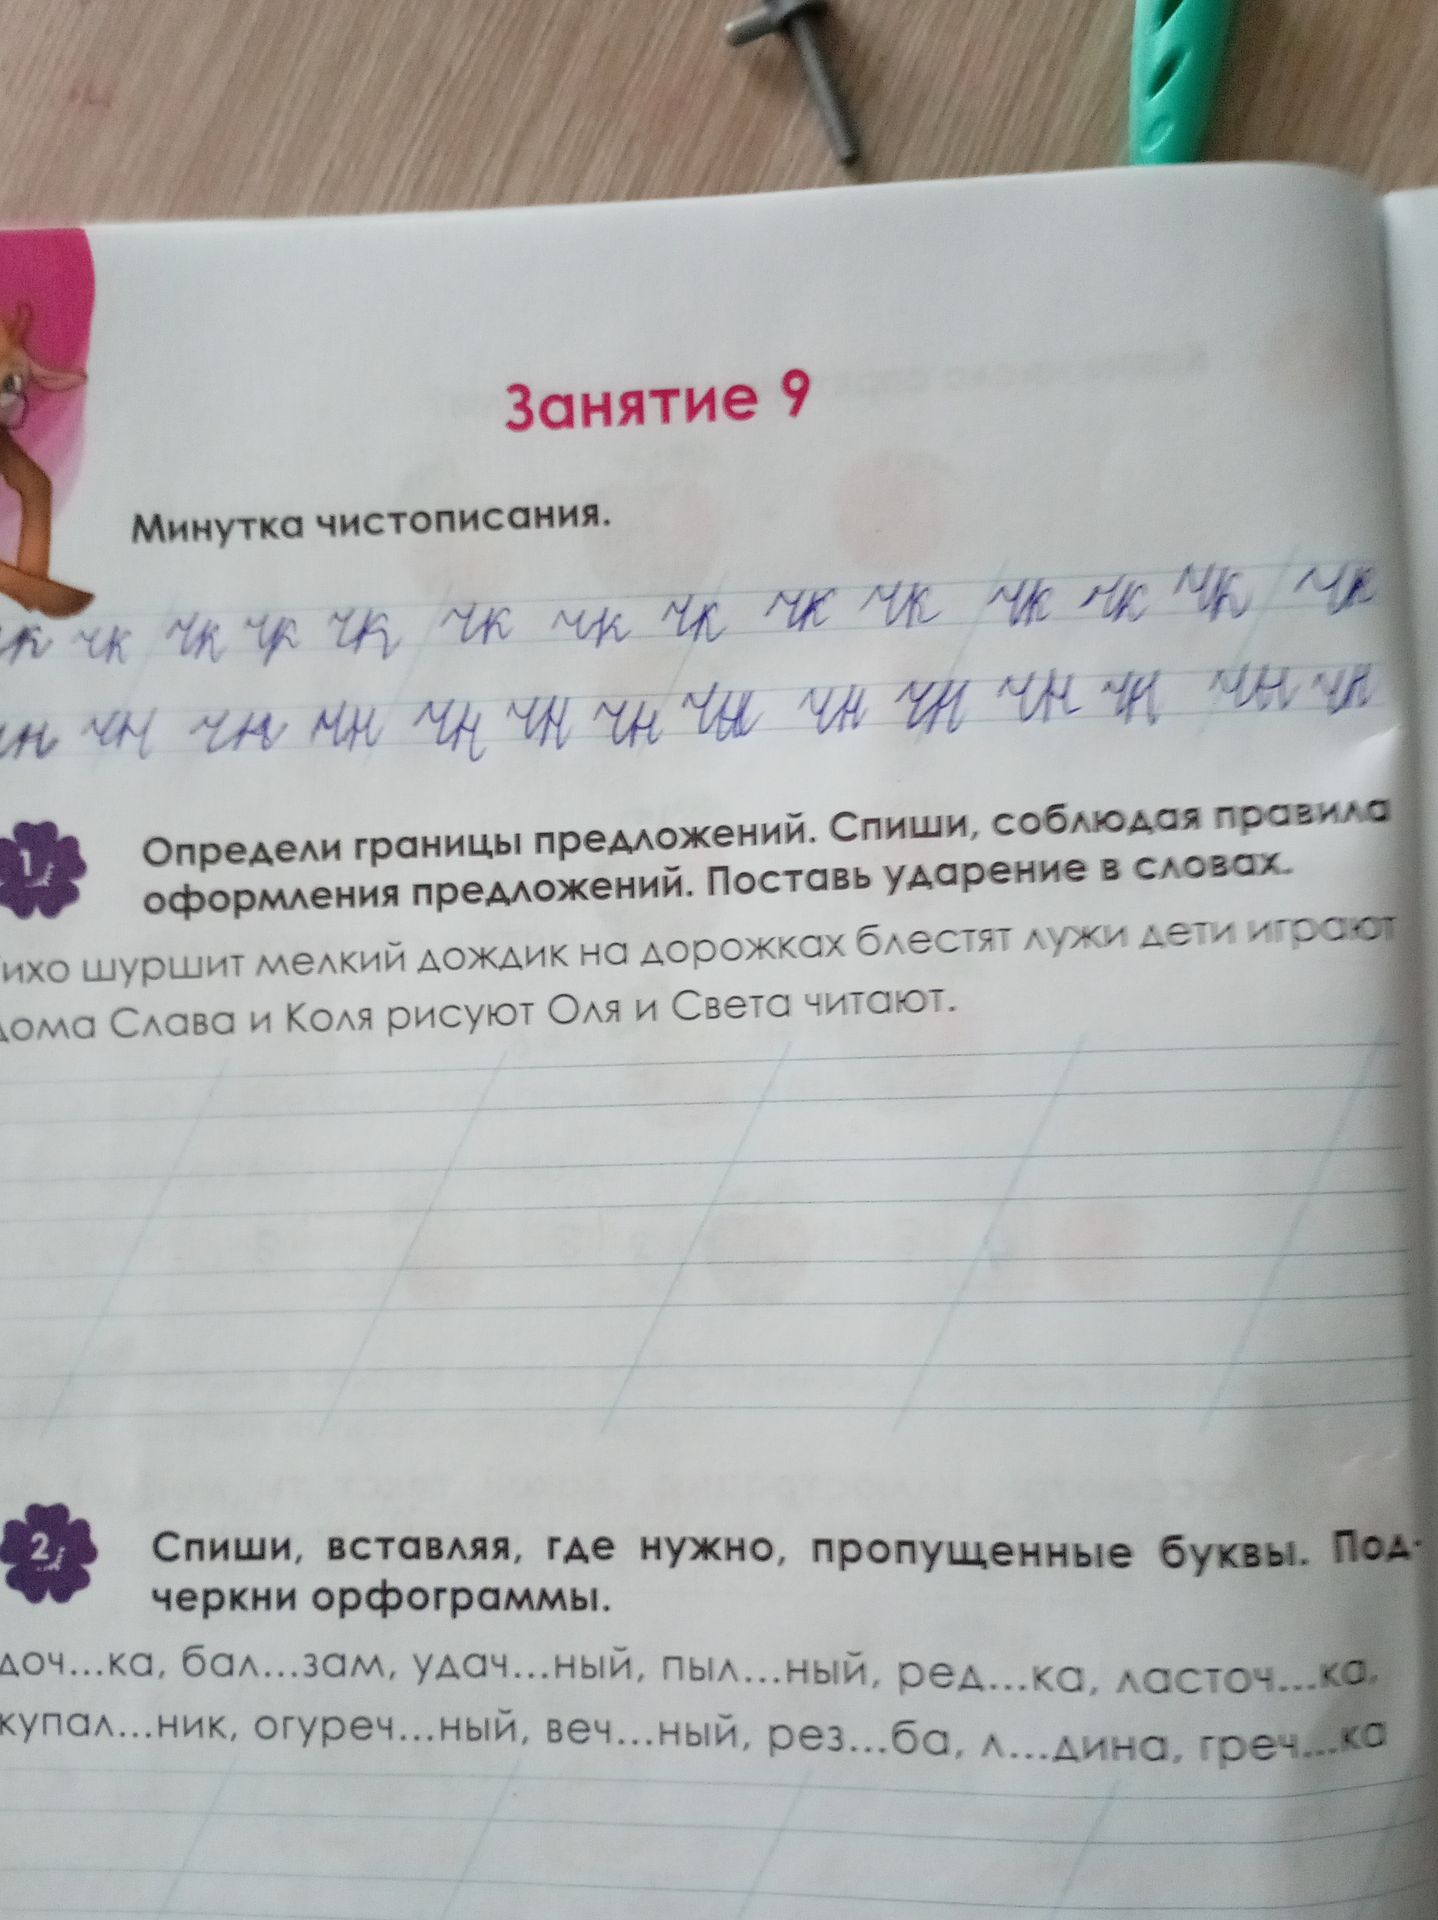 Занятие 9
Минутка чистописания.
чк чк чк чк чк чк чк чк чк чк чк чк чк
чн чн чн чн чн чн чн чн чн чн чн чн чн
1
Определи границы предложений. Спиши, соблюдая правила
оформления предложений. Поставь ударение в словах.
ихо шуршит мелкий дождик на дорожках блестят лужи дети играют
дома Слава и Коля рисуют Оля и Света читают.
2
Спиши, вставляя, где нужно, пропущенные буквы. Под-
черкни орфограммы.
доч...ка, бал...зам, удач...ный, пыл...ный, ред...ка, ласточ...ка,
купал...ник, огуреч...ный, веч...ный, рез...ба, л...дина, греч...ка